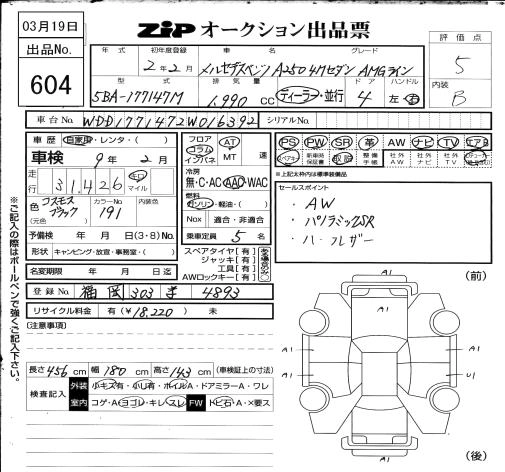 03月19日
ZiP オークション出品票
出品No.
604
評価点
5
内装
B
年式 初年度登録 車名 グレード
2年2月 メルセデスベンツ A250 4Mセダン AMGライン
型式 排気量 ドア ハンドル
5BA-177147M 1,990 CC ディーラー・並行 4 左・右
車台No. WDD1771472W016392 シリアルNo.
車歴 自家用・レンタ・( )
車検 9年2月
走行 31,426 キロ マイル
色 (元色) コスモスブラック カラーNo. 191 内装色
予備検 年 月 日(3・8)No.
形状 キャンピング・放宣・事務室・( )
名変期限 年 月 日迄
フロア コラム インパネ AT MT 速
冷房 無・C・AC・AAC・WAC
燃料 ガソリン・軽油・( )
Nox 適合・非適合
乗車定員 5 名
スペアタイヤ【有】
ジャッキ【有】
工具【有】
AWロックキー【有】
PS PW SR 革 AW ナビ TV エアB
スペアキー 新車時保証書 取説 整備手帳 社外AW 社外ナビ 社外TV
※上記太枠内は標準装備品
セールスポイント
・AW
・パノラミックSR
・ハーフレザー
登録No. 福岡 303 ま 4893
リサイクル料金 有(¥18,220) 未
(注意事項)
長さ 456 cm 幅 180 cm 高さ 143 cm (車検証上の寸法)
検査記入 外装 小キズ有・小凹有・ホイルA・ドアミラーA・ワレ
室内 コゲ・A・ヨゴレ・キレ・スレ FW トビ石・A・×要ス
※ご記入の際はボールペンで強くご記入下さい。
(前)
A1
A1
A1 A1
A1 U1
A1
(後)